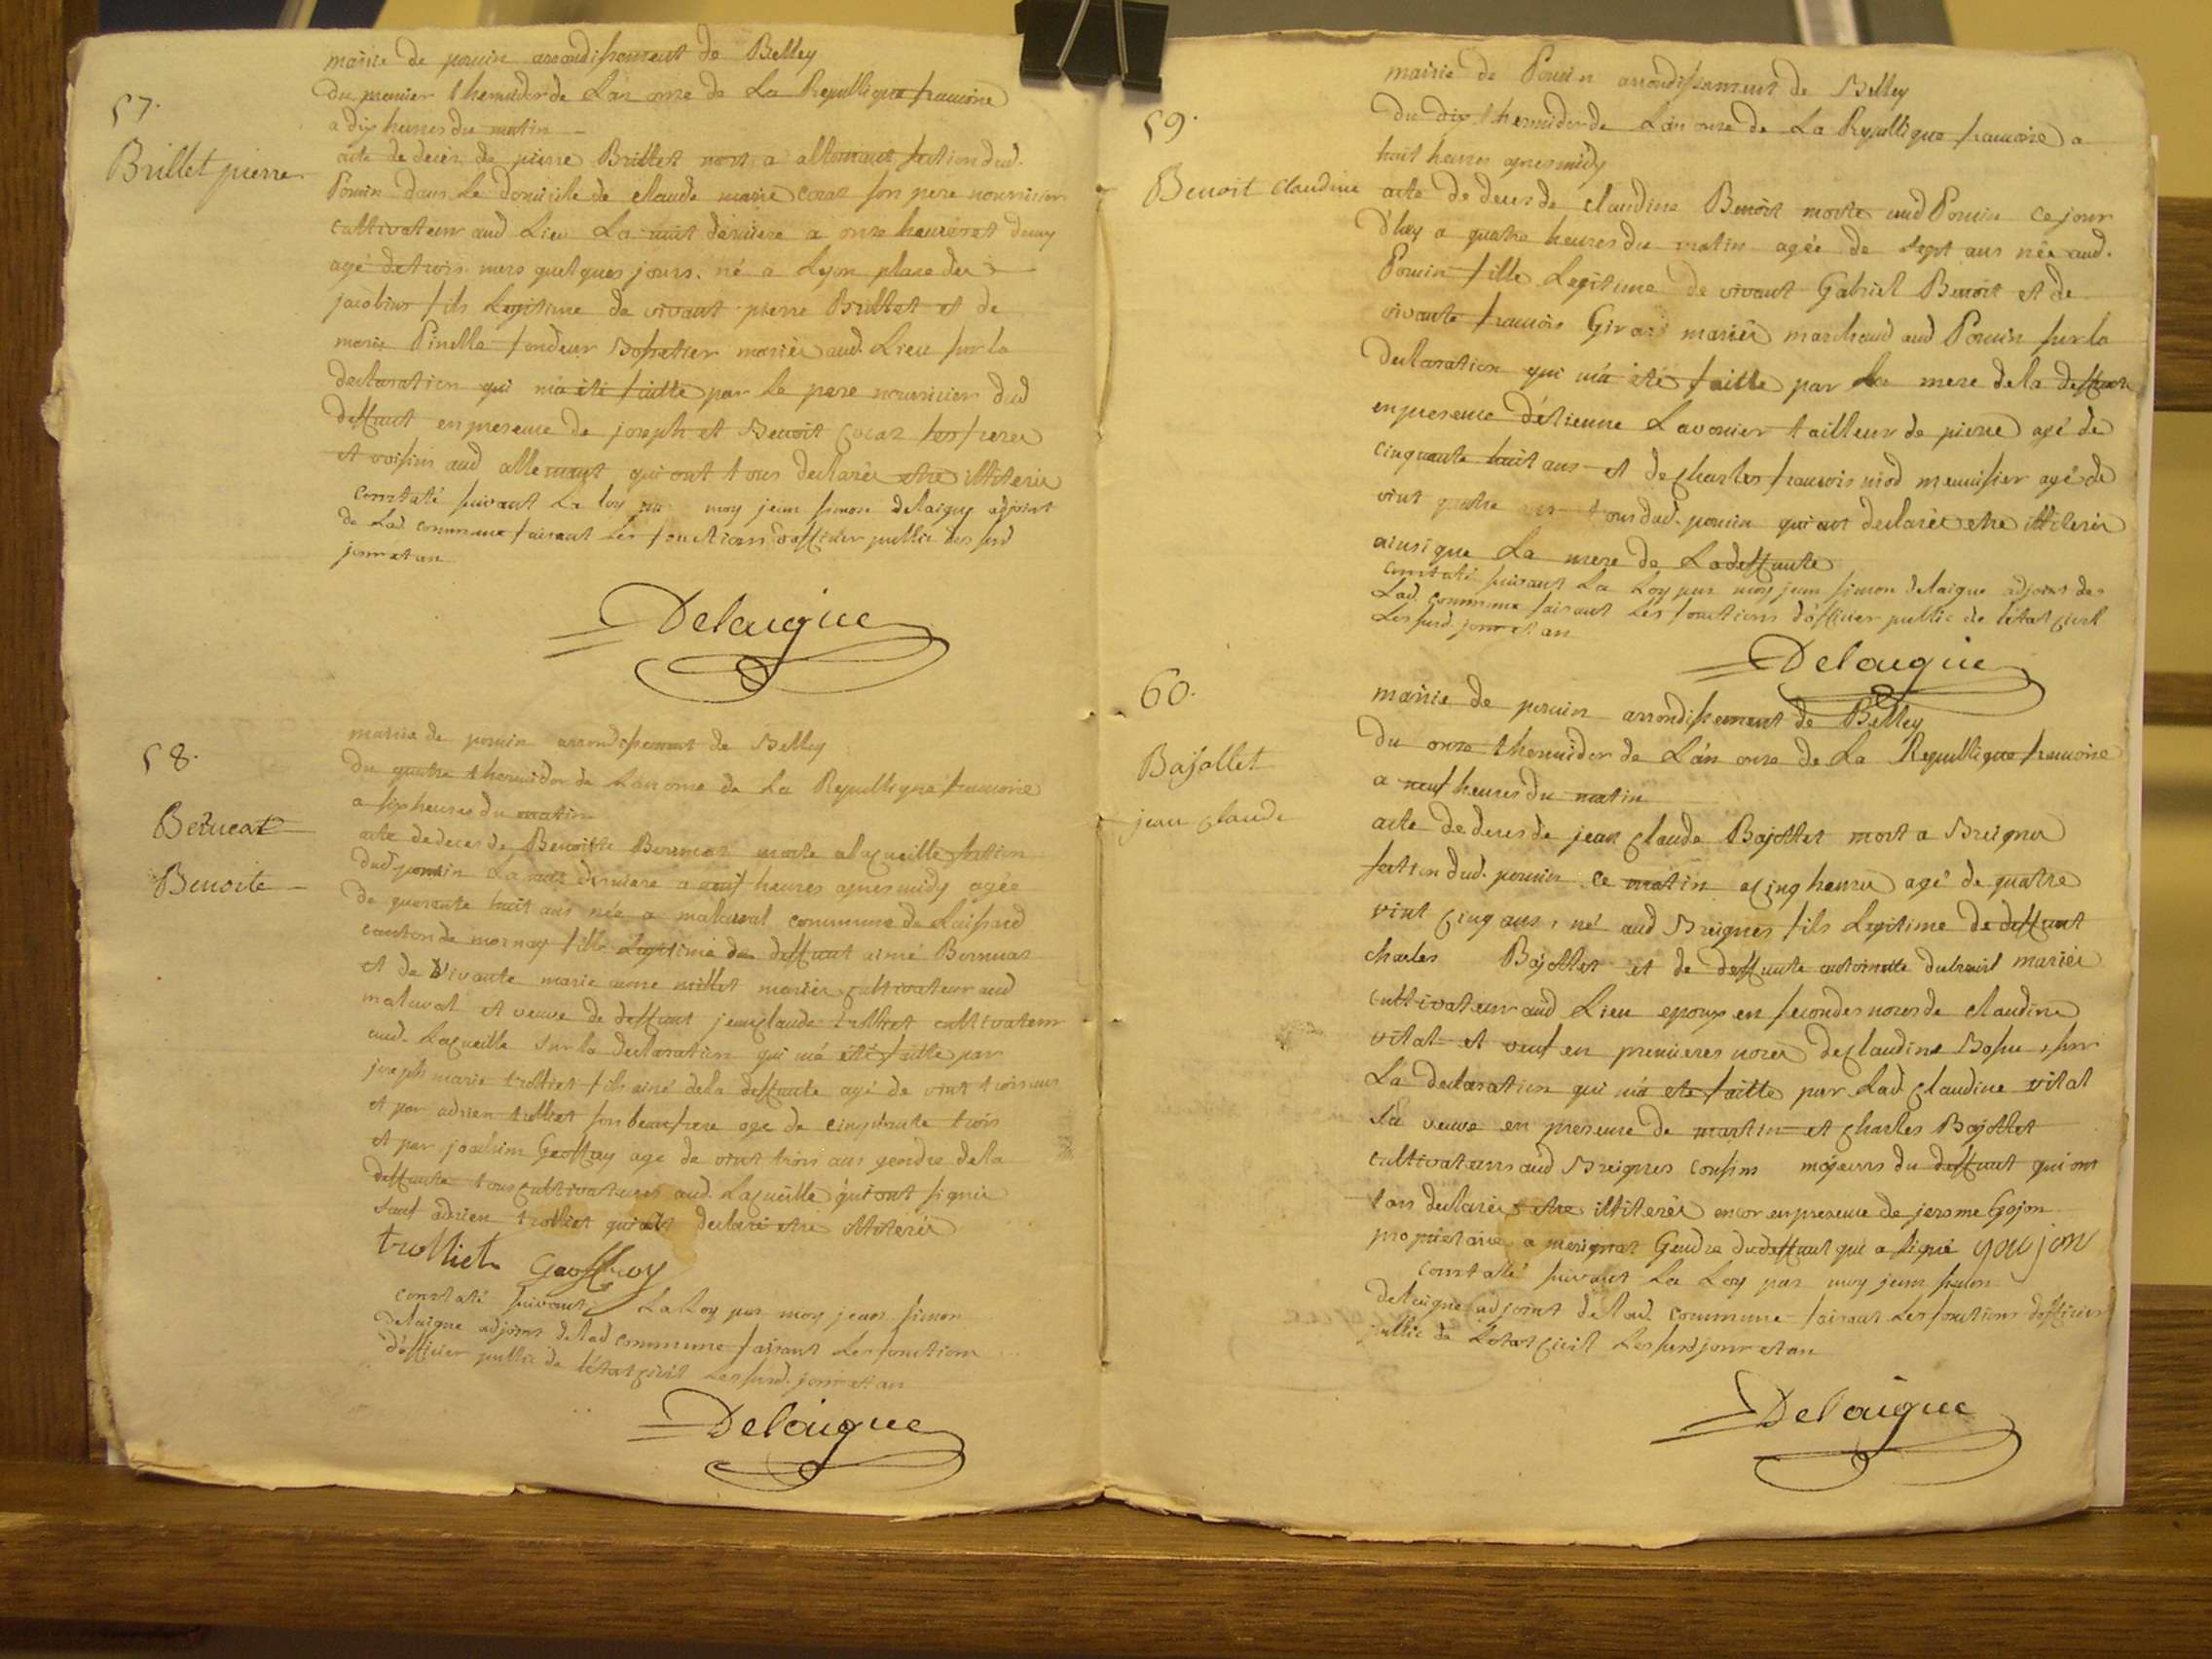 57.
Brillet pierre
mairie de poncin arrondissement de Belley
Du premier thermidor de L'an onze de La Republique francoise
a dix heures du matin
acte de decès de pierre Brillet mort a allemant section dud.
Poncin dans Le domicile de claude marie cocar son pere nourricier
cultivateur aud Lieu La nuit dernière a onze heures et demy
agé de trois mois quelques jours. né a Lyon place des
jacobins fils Legitime de vivant pierre Brillet et de
marie Pinelle fondeur mariés aud. Lieu sur la
declaration qui m'a été faitte par le pere nourricier dud
deffunt en presence de joseph et Benoit cocar ses freres
et voisins aud allemant qui ont tous declarés etre illiterés
Constaté suivant La loy par moy jean simon delaigue adjoint
de Lad. commune faisant Les fonctions d'officier public Les susd
jour et an
Delaigue
58.
Bernear
Benoite
mairie de poncin arrondissement de Belley
Du quatre thermidor de L'an onze de La Republique francoise
a six heures du matin
acte de deces de Benoitte morte a la cueille section
dud poncin La nuit derniere a neuf heures apres midy agée
de quarante huit ans née a malaval commune de Laissard
canton de mornay fille Legitime de deffunt aimé
et de vivante marie anne millet mariés cultivateur aud
malaval et veuve de deffunt jean claude trolliet cultivateur
aud. Lacueille sur la declaration qui m'a été faitte par
joseph marie trolliet fils ainé de la deffunte agé de vint trois ans
et par adrien trolliet son beau frere age de cinquante trois
et par joachim Geoffray age de vint trois ans gendre de la
deffunte tous cultivateurs aud. Lacueille qui ont signés
sauf adrien trolliet qui a declaré etre illiterés
trolliet Geoffroy
Constaté suivant La Loy par moy jean simon
Delaigue adjoint de Lad commune faisant Les fonctions
d'officier public de l'état civil Les susd. jour et an
Delaigue
59.
Benoit claudine
mairie de Poncin arrondissement de Belley
Du dix thermidor de L'an onze de La Republique francoise a
huit heures apres midy
acte de deces de claudine Benoit morte aud Poncin ce jour
d'huy a quatre heures du matin agée de sept ans née aud.
Poncin fille Legitime de vivant Gabriel Benoit et de
vivante francoise Girard mariés marchand aud Poncin sur la
Declaration qui m'a été faitte par La mere de la deffunte
en presence d'étienne Lavonier tailleur de pierre agé de
cinquante huit ans et de charles francois niod menuisier agé de
vint quatre ans tous dud. poncin qui ont declarés etre illiterés
ainsi que La mere de La deffunte
Constaté suivant La Loy par moy jean simon delaigue adjoint de
Lad. commune faisant Les fonctions d'officier public de l'état civil
Les susd. jour et an
Delaigue
60.
Bajollet
jean claude
mairie de poncin arrondissement de Belley
Du onze thermidor de L'an onze de La Republique francoise
a neuf heures du matin
acte de deces de jean claude Bajollet mort a Breignes
section dud. poncin ce matin a cinq heures agé de quatre
vint cinq ans, né aud Breignes fils Legitime de deffunt
charles Bajollet et de deffunte antoinette dubreuil mariés
cultivateur aud Lieu epoux en secondes noces de claudine
vital et veuf en premieres noces de claudine Bossu, sur
La declaration qui m'a ete faitte par Lad. claudine vital
sa veuve en presence de martin et charles Bajollet
cultivateurs aud Breignes cousins majeurs du deffunt qui ont
tous declarés etre illiterés encor en presence de jerome Gojon
propriétaire a merignat Gendre du deffunt qui a signé goujon
Constaté suivant La Loy par moy jean simon
delaigue adjoint de Lad. commune faisant Les fonctions d'officier
public de L'etat civil Les susd jour et an
Delaigue